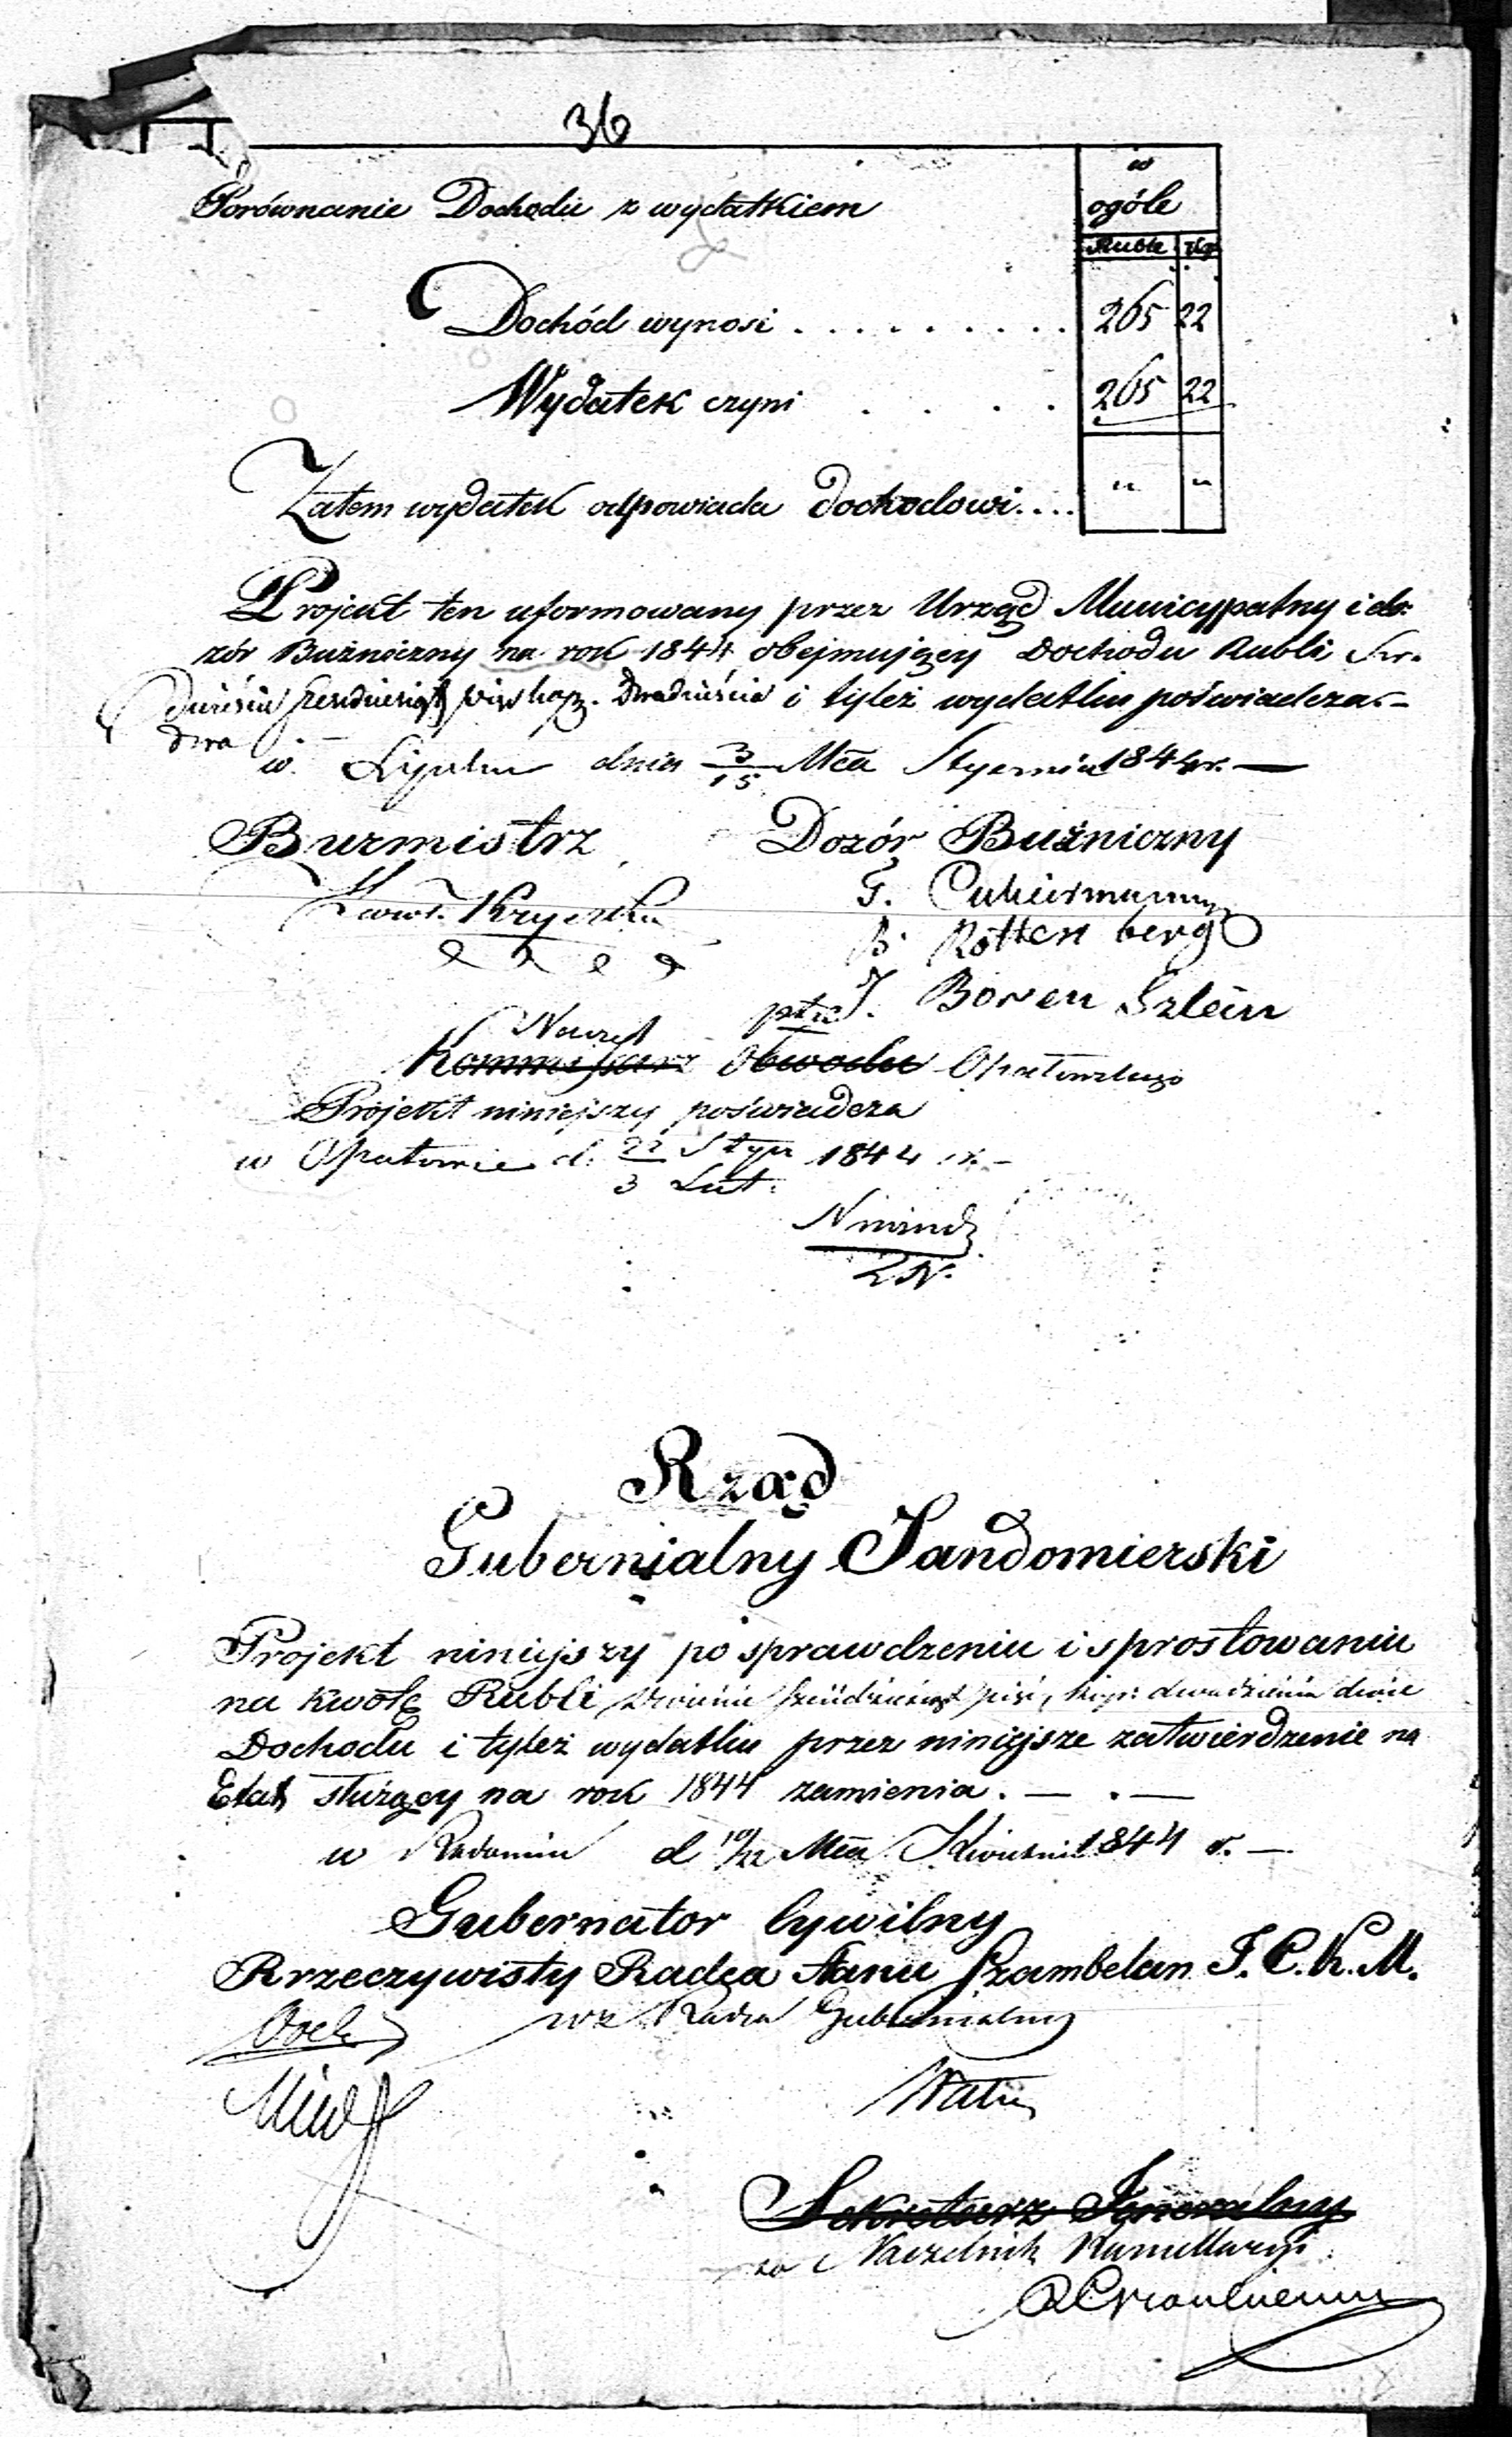 36
w
ogóle
Porównanie Dochodu z wydatkiem
Ruble kop
Dochód wynosi . . . . . . . . . 265 22
Wydatek czyni . . . . 265 22
Zatem wydatek odpowiada dochodowi.... " "
Projekt ten uformowany przez Urząd Municypalny i do=
zór Bużniczny na rok 1844 obejmujący Dochodu Rubli Sr.
dwieście sześćdziesiąt pięć kop. Dwadzieścia i tyleż wydatku poświadcza.-
dwa
w dnia 3/15 Mca Stycznia 1844 r. —
Burmistrz Dozór Bużniczny
G. Cukiermann
B. Rotten berg
J. Boren Sztein
Naczel
Kommissarz Obwodu Opatowskiego
Projekt niniejszy poświadcza
w Opatowie d. 22 Stycz 1844 r. -
3 Lut.
Rząd
Gubernialny Sandomierski
Projekt niniejszy po sprawdzeniu i sprostowaniu
na kwotę Rubli dwieście sześćdziesiąt pięć, kop: dwadzieścia dwie
Dochodu i tyleż wydatku przez niniejsze zatwierdzenie na
Etat służący na rok 1844 zamienia. — . —
w Radomiu d 10/22 Mca Kwietnia 1844 r. —
Gubernator Cywilny
Rzeczywisty Radca Stanu Szambelan J. C. K. M.
wz Radca Gubernialny
Sekretarz Jeneralny
za Naczelnik Kancellaryi